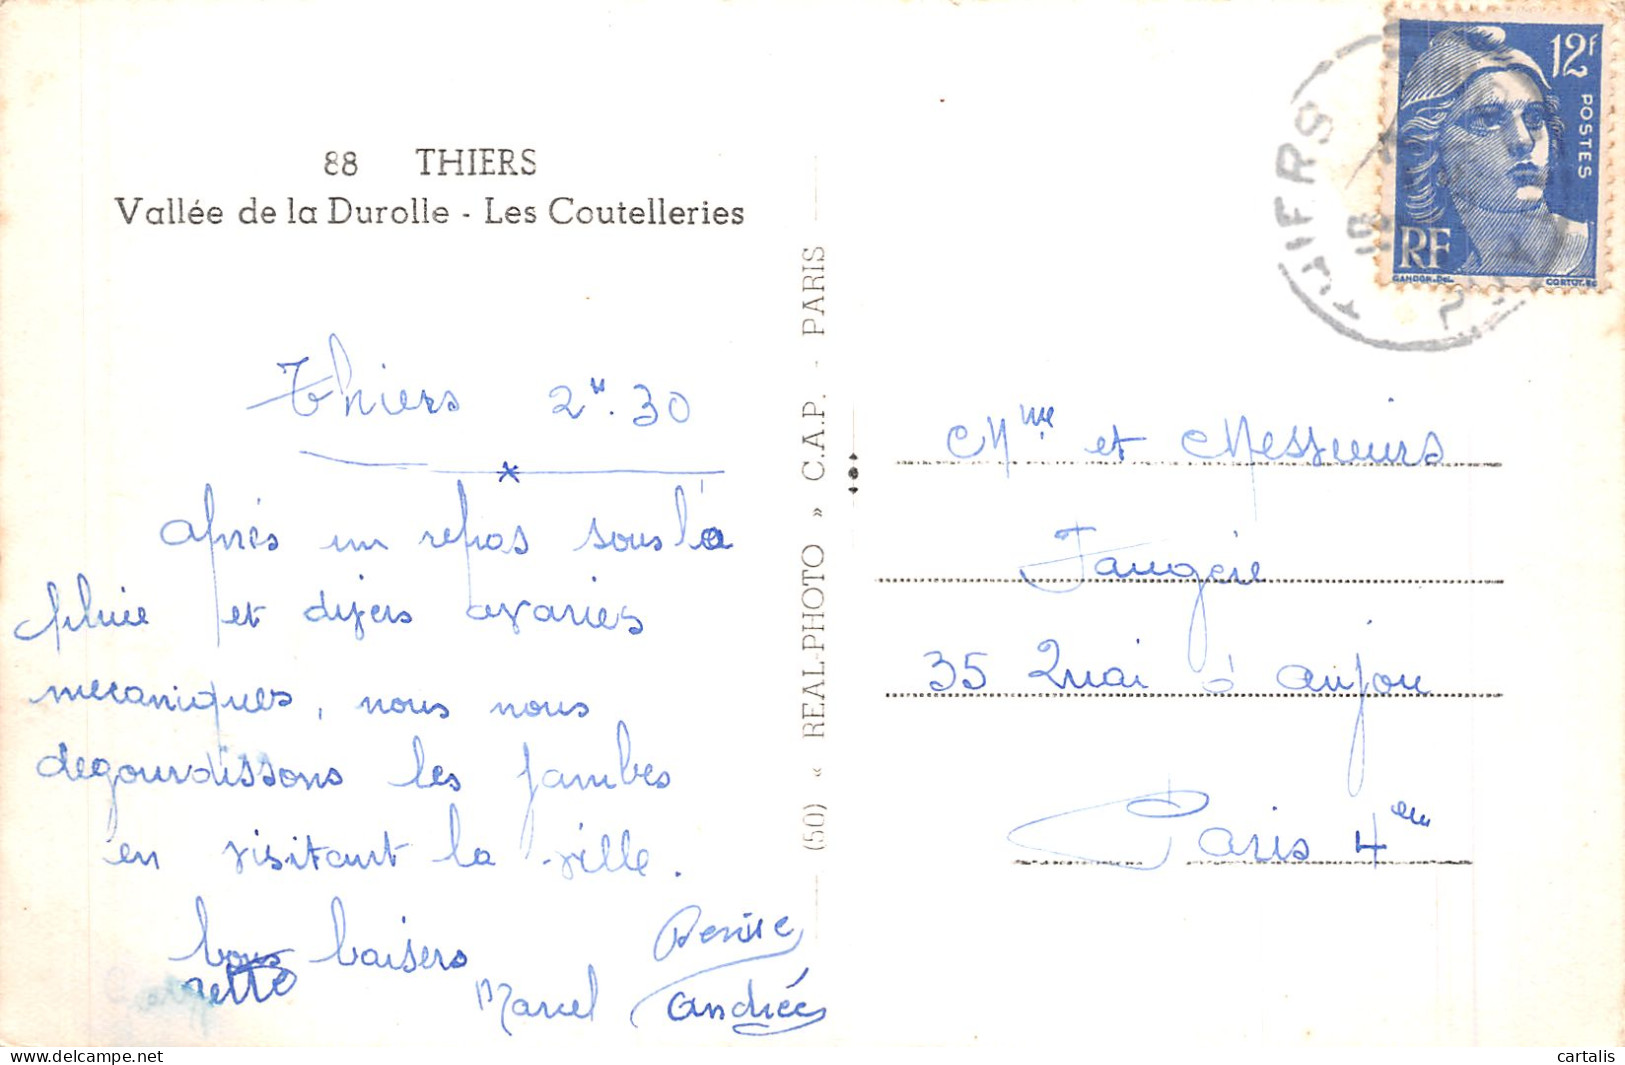 88 THIERS
Vallée de la Durolle - Les Coutelleries
Thiers 2H.30
Après un repas sous la
pluie et divers avaries
mecaniques, nous nous
degourdissons les jambes
en visitant la ville.
bons baisers Denise
Marcel Andrée
(50) « REAL-PHOTO » C.A.P. - PARIS
12F
POSTES
RF
GANDON.DEL.
CORTOT.SC
THIERS
Mme et Messieurs
Faugère
35 Quai d'anjou
Paris 4em
cartalis